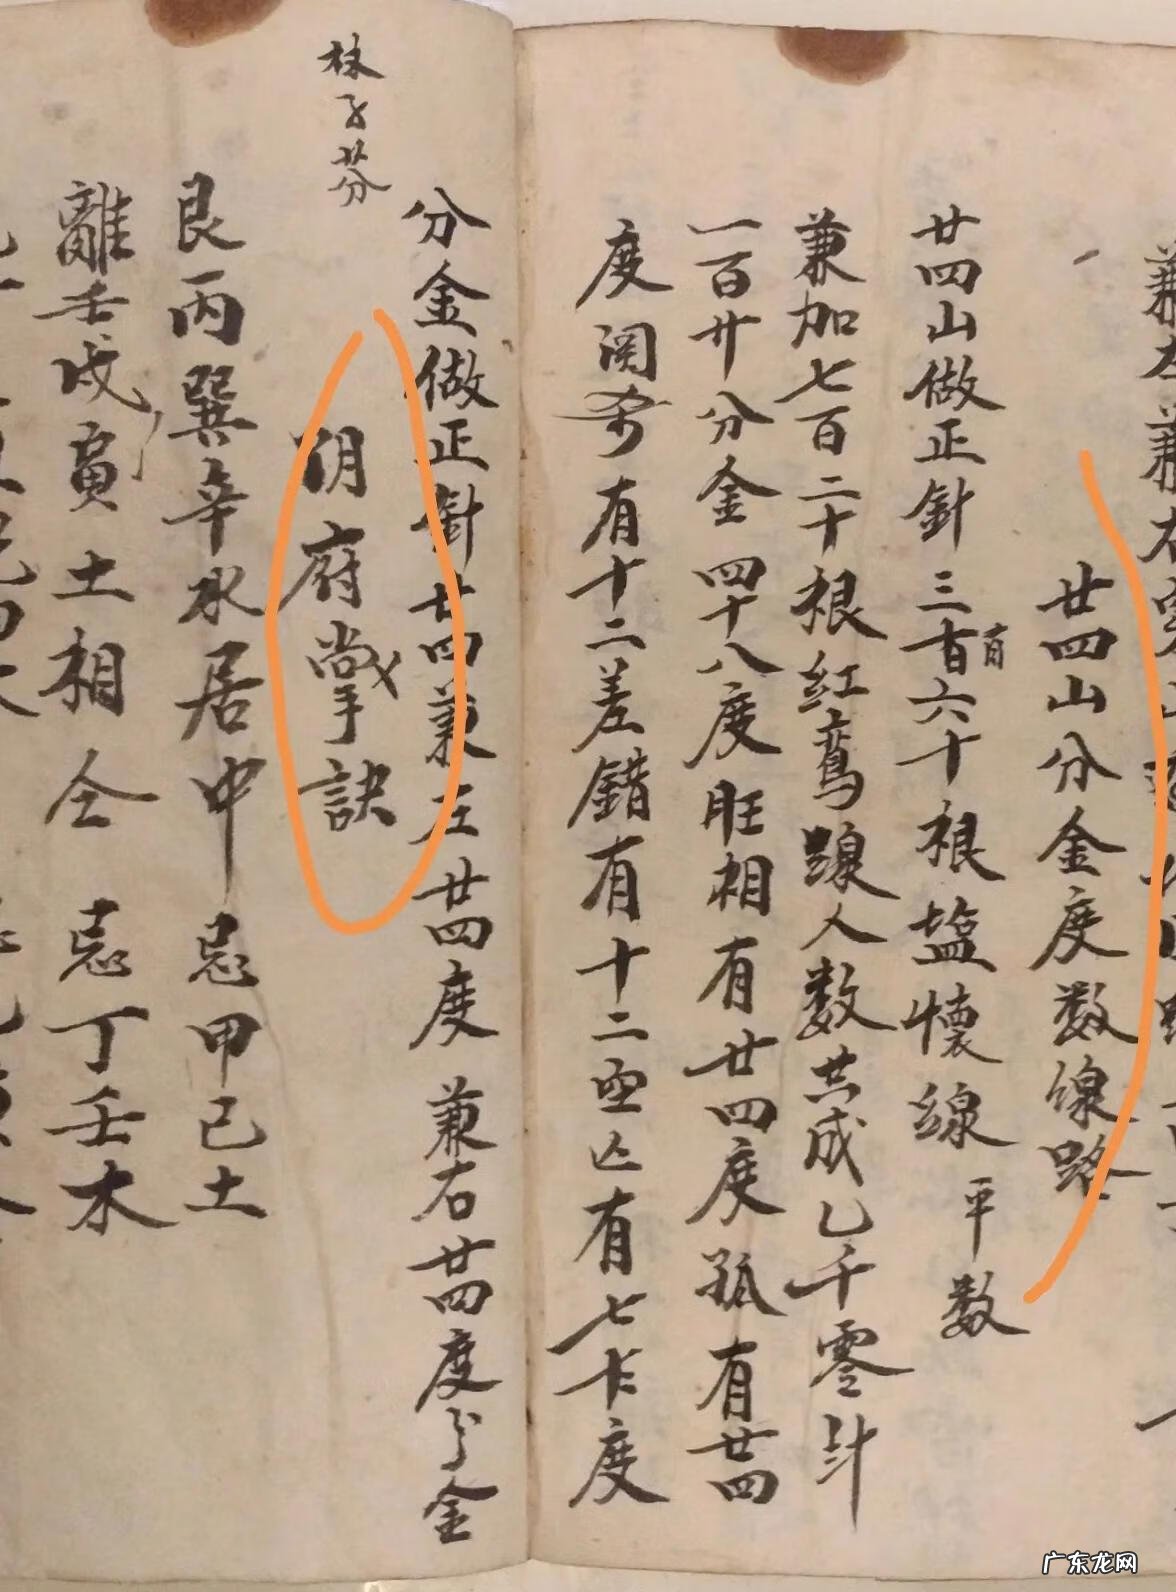 廿四山分金度数線路
廿四山做正針三百有六十根盐懷線平数
兼加七百二十根紅鸾線人数共成乙千零
一百廿分金四十八度旺相有廿四度孤有廿四
度関有十二差錯有十二空亡有七十度
分金做正針廿四兼左廿四度兼右廿四度分金
林子芬
阴府掌訣
艮丙巽辛水居中忌甲己土
離壬戌寅土相仝忌丁壬木
广东龙网